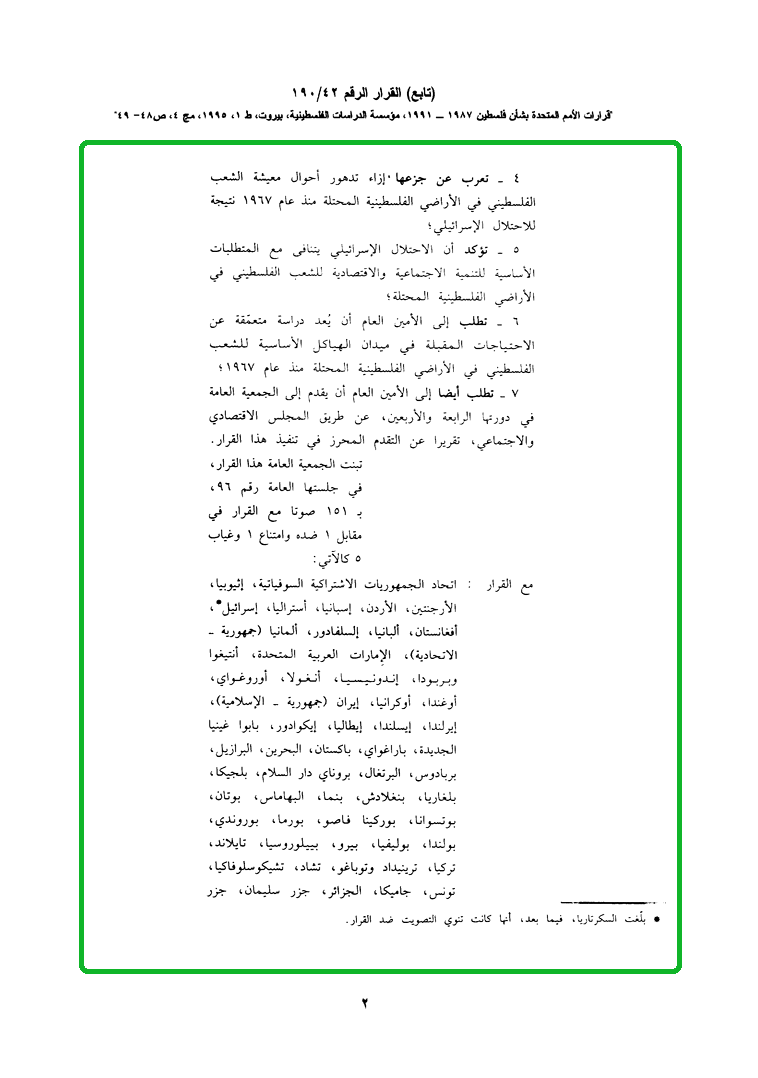 (تابع) القرار الرقم ١٩٠/٤٢
"قرارات الأمم المتحدة بشأن فلسطين ١٩٨٧ ــ ١٩٩١، مؤسسة الدراسات الفلسطينية، بيروت، ط ١، ١٩٩٥، مج ٤، ص٤٨- ٤٩"
٤ ـ تعرب عن جزعها إزاء تدهور أحوال معيشة الشعب
الفلسطيني في الأراضي الفلسطينية المحتلة منذ عام ١٩٦٧ نتيجة
للاحتلال الإسرائيلي؛
٥ ـ تؤكد أن الاحتلال الإسرائيلي يتنافى مع المتطلبات
الأساسية للتنمية الاجتماعية والاقتصادية للشعب الفلسطيني في
الأراضي الفلسطينية المحتلة؛
٦ ـ تطلب إلى الأمين العام أن يُعد دراسة متعمّقة عن
الاحتياجات المقبلة في ميدان الهياكل الأساسية للشعب
الفلسطيني في الأراضي الفلسطينية المحتلة منذ عام ١٩٦٧؛
٧ ـ تطلب أيضا إلى الأمين العام أن يقدم إلى الجمعية العامة
في دورتها الرابعة والأربعين، عن طريق المجلس الاقتصادي
والاجتماعي، تقريرا عن التقدم المحرز في تنفيذ هذا القرار.
تبنت الجمعية العامة هذا القرار،
في جلستها العامة رقم ٩٦،
بـ ١٥١ صوتا مع القرار في
مقابل ١ ضده وامتناع ١ وغياب
٥ كالآتي:
مع القرار : اتحاد الجمهوريات الاشتراكية السوفياتية، إثيوبيا،
الأرجنتين، الأردن، إسبانيا، أستراليا، إسرائيل•،
أفغانستان، ألبانيا، إلسلفادور، ألمانيا (جمهورية ـ
الاتحادية)، الإمارات العربية المتحدة، أنتيغوا
وبربودا، إندونيسيا، أنغولا، أوروغواي،
أوغندا، أوكرانيا، إيران (جمهورية ـ الإسلامية)،
إيرلندا، إيسلندا، إيطاليا، إيكوادور، بابوا غينيا
الجديدة، باراغواي، باكستان، البحرين، البرازيل،
بربادوس، البرتغال، بروناي دار السلام، بلجيكا،
بلغاريا، بنغلادش، بنما، البهاماس، بوتان،
بوتسوانا، بوركينا فاصو، بورما، بوروندي،
بولندا، بوليفيا، بيرو، بييلوروسيا، تايلاند،
تركيا، ترينيداد وتوباغو، تشاد، تشيكوسلوفاكيا،
تونس، جاميكا، الجزائر، جزر سليمان، جزر
• بلّغت السكرتاريا، فيما بعد، أنها كانت تنوي التصويت ضد القرار.
٢